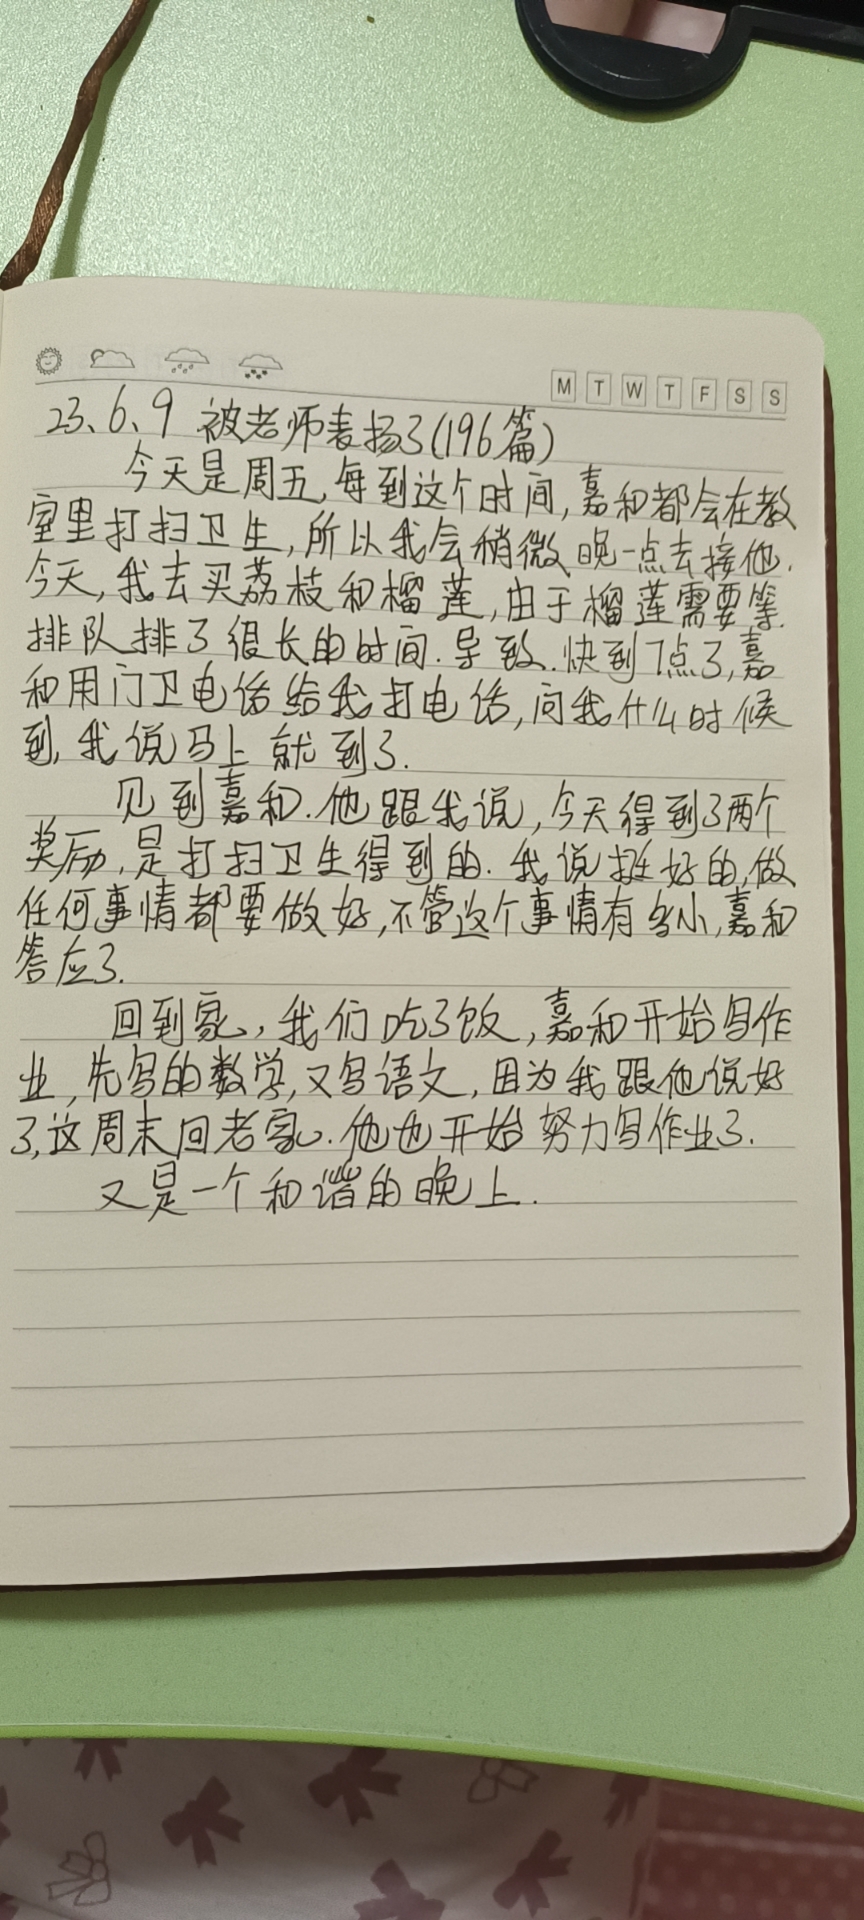 M T W T F S S
23、6、9 被老师表扬了(196篇)
今天是周五,每到这个时间,嘉和都会在教
室里打扫卫生,所以我会稍微晚一点去接他.
今天,我去买荔枝和榴莲,由于榴莲需要等.
排队排了很长的时间.导致.快到7点了,嘉
和用门卫电话给我打电话,问我什么时候
到,我说马上就到了.
见到嘉和.他跟我说,今天得到了两个
奖励,是打扫卫生得到的.我说挺好的,做
任何事情都要做好,不管这个事情有多小,嘉和
答应了.
回到家,我们吃了饭,嘉和开始写作
业,先写的数学,又写语文,因为我跟他说好
了,这周末回老家.他也开始努力写作业了.
又是一个和谐的晚上.